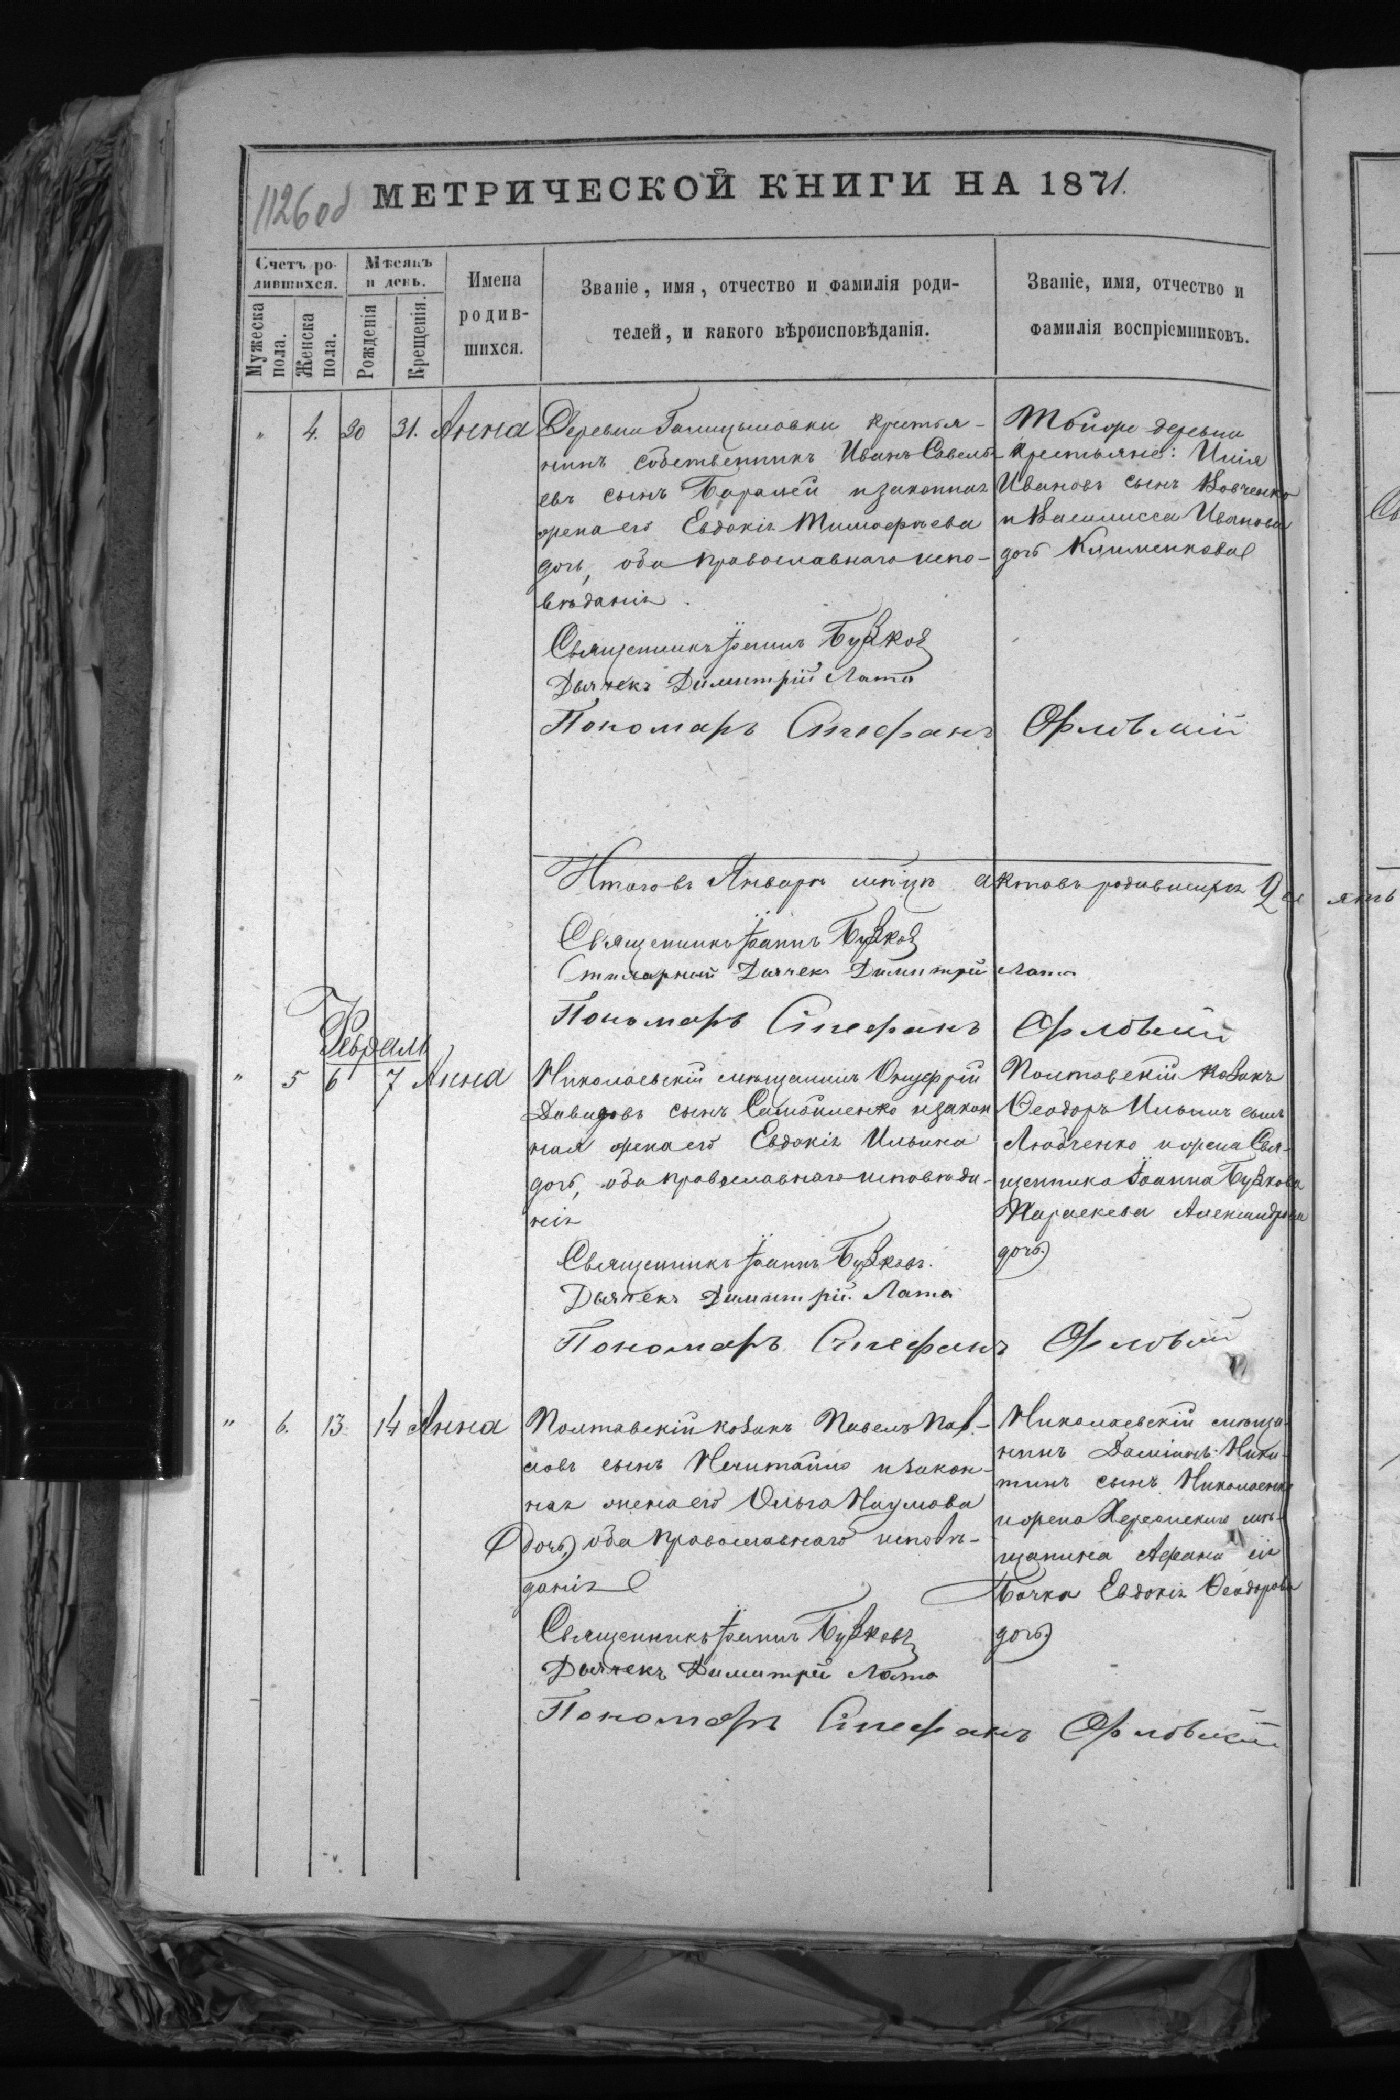 1126 об
МЕТРИЧЕСКОЙ КНИГИ НА 1871.
Счетъ родившихся.
Мѣсяцъ и день.
Мужеска пола.
Женска пола.
Рожденія
Крещенія.
Имена
родив-
шихся.
Званіе, имя, отчество и фамилія роди-
телей, и какого вѣроисповѣданія.
Званіе, имя, отчество и
фамилія воспріемниковъ.
" 4. 30 31. Анна
Деревни Голицыновки крестья-
нинъ собственникъ Иванъ Савель-
евъ сынъ и законная
жена его Евдокія Тимофѣева
дочь, оба православнаго испо-
вѣданія.
Священникъ Іоаннъ Бужков
Дьячекъ Димитрій Лата
Пономарь Стефанъ Орловскій
Тойже деревни
крестьяне: Илія
Ивановъ сынъ Вовченко
и Василисса Иванова
дочь Клименкова
Итого въ Январѣ мѣсяцѣ актовъ родившихся
Священникъ Іоаннъ Бужков
Дьячекъ Димитрій Лата
Пономарь Стефанъ Орловскій
Февраль
" 5 6 7 Анна
Николаевскій мѣщанинъ Онуфрій
Давидовъ сынъ Самойленко и закон
ная жена его Евдокія Ильина
дочь, оба православнаго исповѣда-
нія
Священникъ Іоаннъ Бужковъ.
Дьячекъ Димитрій Лата
Пономарь Стефанъ Орловскій
Полтавскій козакъ
Ѳеодоръ Ильинъ сынъ
Любченко и жена Свя-
щенника Іоанна Бужкова
Параскева Александрова
дочь
" 6. 13 14 Анна
Полтавскій козакъ Павелъ Пав-
ловъ сынъ Нечитайло и закон-
ная жена его Ольга Наумова
дочь, оба православнаго исповѣ-
данія
Священникъ Іоаннъ Бужковъ
Дьячекъ Димитрій Лата
Пономарь Стефанъ Орловскій
Николаевскій мѣща-
нинъ Даміанъ Ники-
тинъ сынъ Николаенко
и жена Херсонскаго мѣ-
щанина Афанасія
Бочка Евдокія Ѳеодорова
дочь